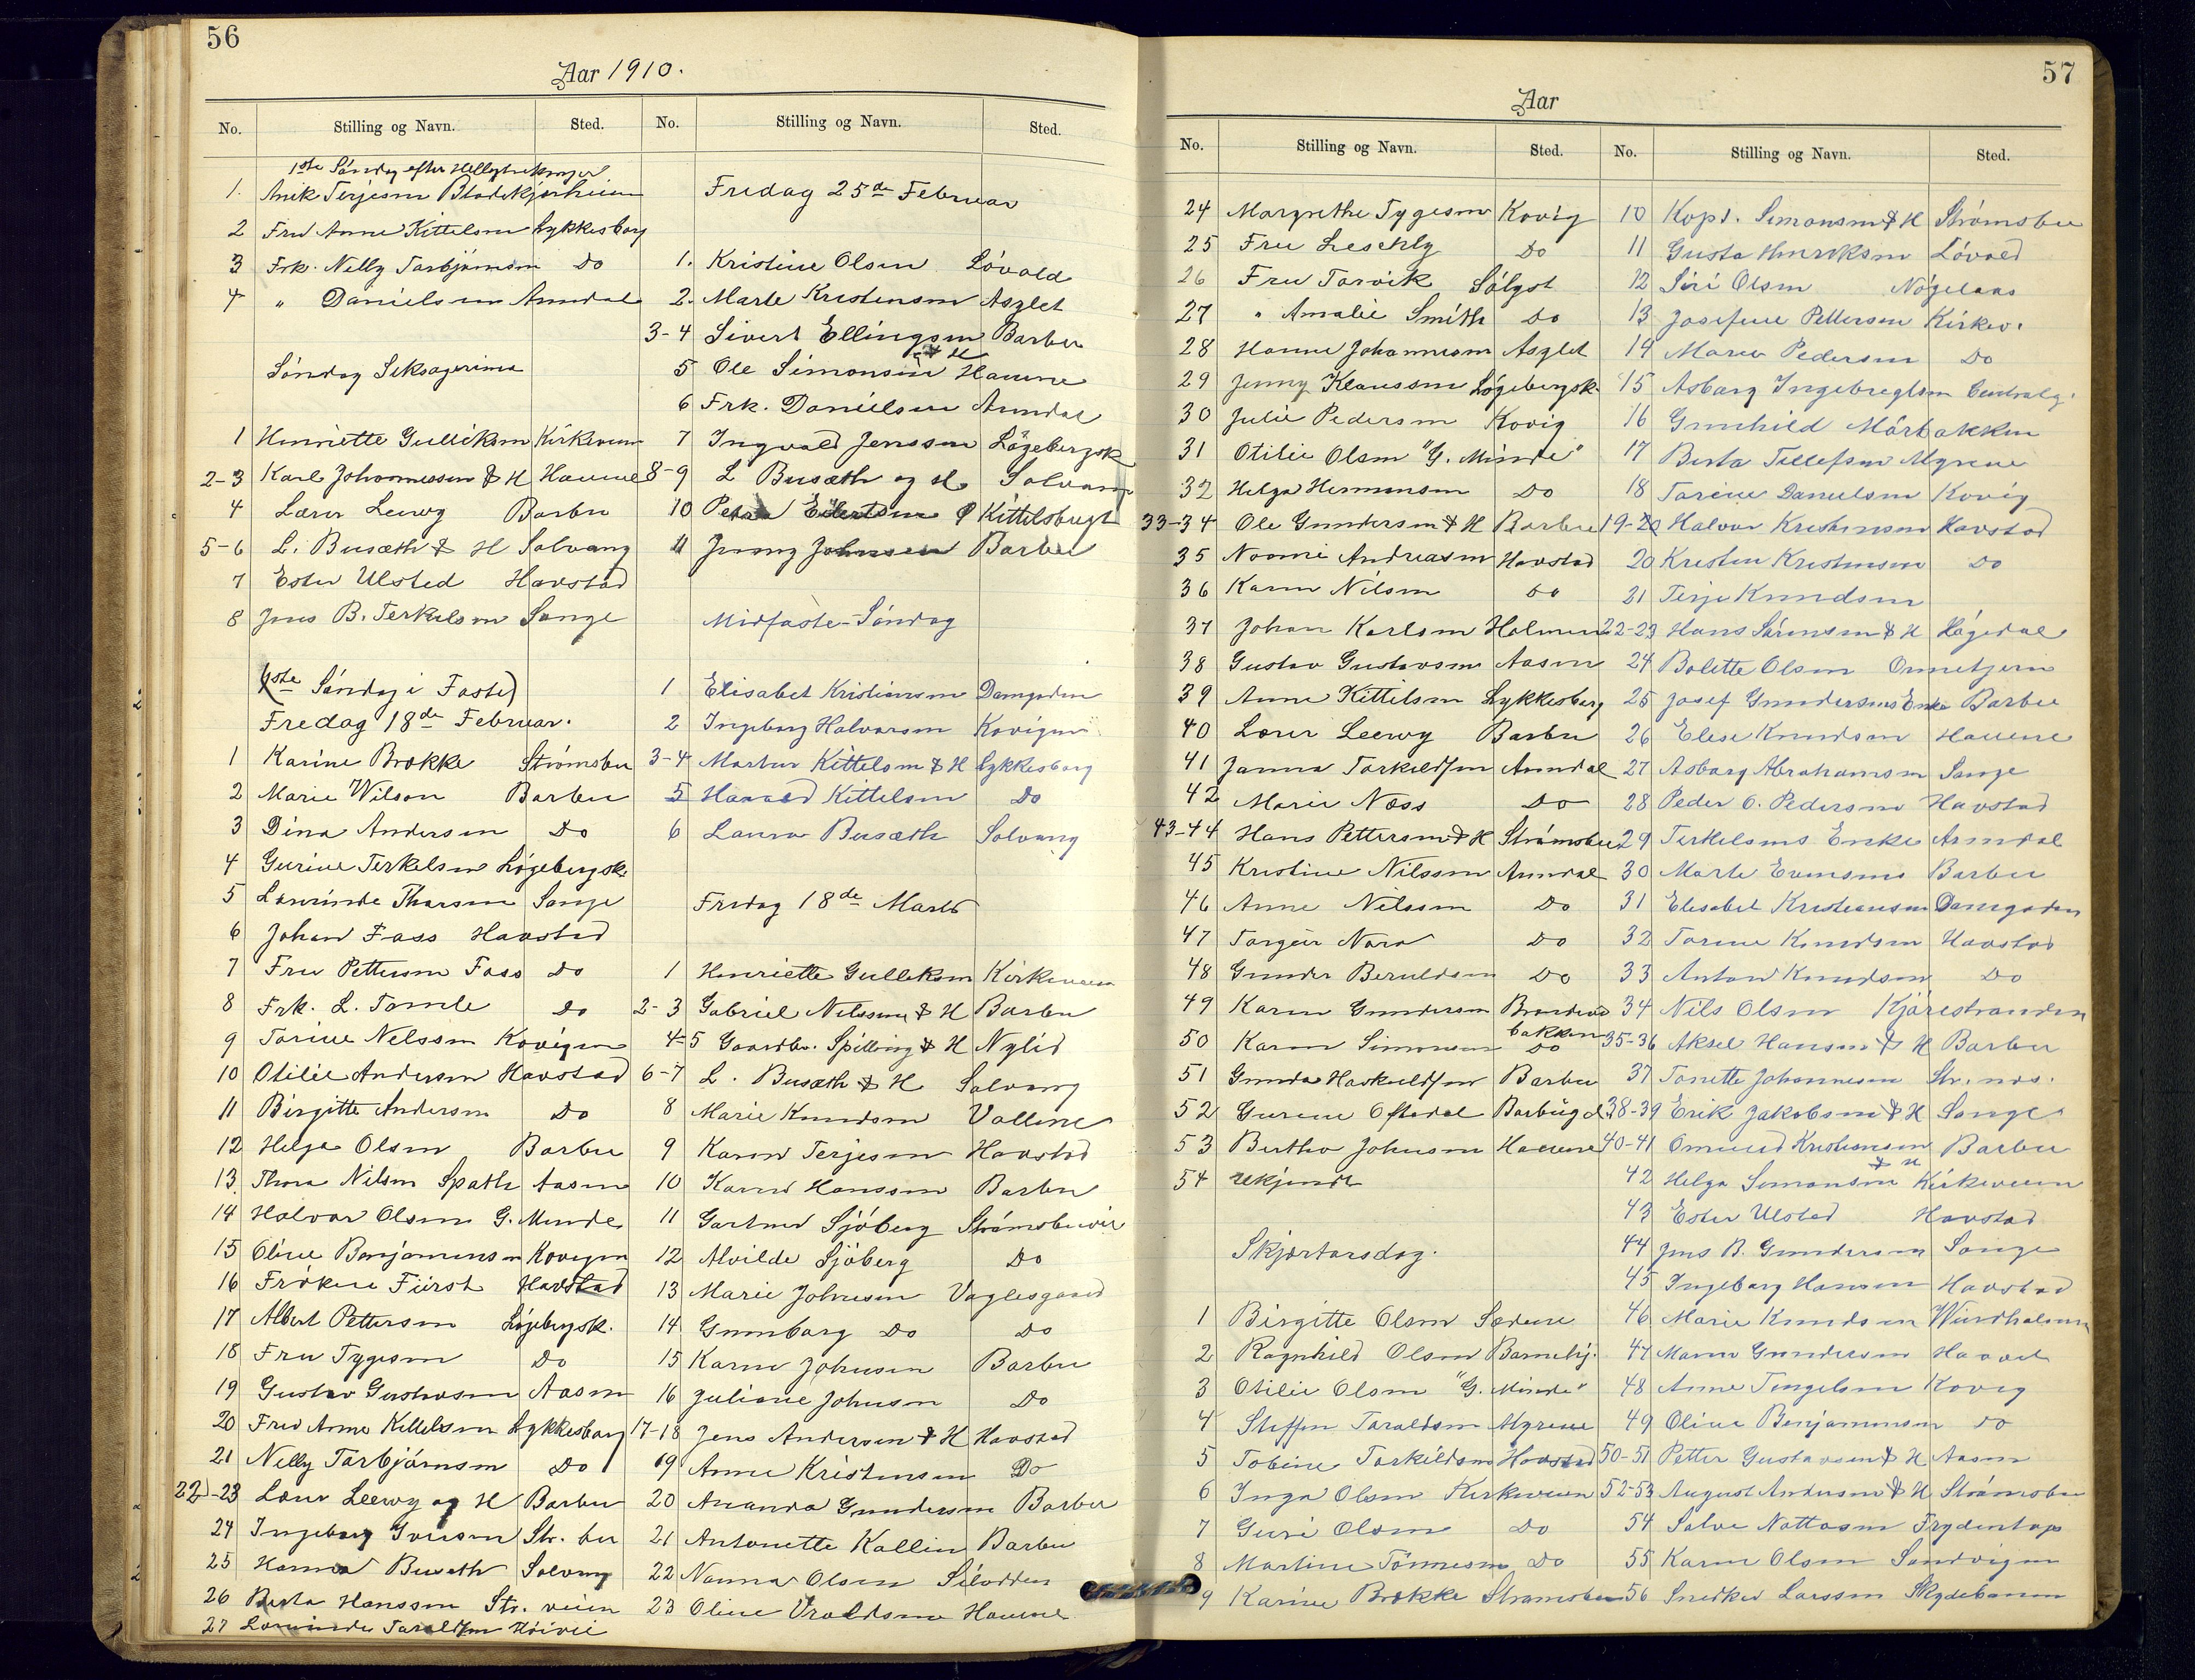 56
Aar 1910.
No. Stilling og Navn. Sted.
1ste Søndag efter
1. Terjesen
2 Fru Anne Kittelsen Lykkesborg
3 Frk. Nelly Torbjørnsen Do
4 " Danielsen Arendal
Søndag Seksagesima
1 Henriette Gulliksen Kirkeveien
2-3 Karl Johannessen & H Hauene
4 Lærer Leervg Barbu
5-6 L. Busæth & H Solvang
7 Ester Ulsted Havstad
8 Jens B. Terkelsen Songe
(1ste Søndag i Faste)
Fredag 18de Februar.
1 Karine Brække Strømsbu
2 Marie Wilson Barbu
3 Dina Andersen Do
4 Gurine Terkelsen Løgebergsk.
5 Lovrinde Thorsen Songe
6 Johan Foss Havstad
7 Fru Pettersen Foss Do
8 Frk. L. Tomle Do
9 Torine Nelssen Kovigen
10 Otilie Andersen Havstad
11 Birgitte Andersen Do
12 Helge Olsen Barbu
13. Thora Nilsen Spath Aasen
14 Halvor Olsen G. Minde
15 Oline Benjaminsen Kovigen
16 Frøkene Fürst Havstad
17 Albert Pettersen Løgebergsk.
18 Fru Tygesen Do
19 Gustav Gustavsen Aasen
20 Fru Anne Kittelsen Lykkesborg
21 Nelly Torbjørnsen Do
22-23 Lærer Leervg og H Barbu
24 Ingeborg Iversen Str. bu
25 Hanna Busæth Solvang
26 Berta Hanssen Str. veien
27 Lovrinde Taraldsen Høivei
No. Stilling og Navn. Sted.
Fredag 25de Februar
1. Kristine Olsen Løvold
2. Marte Kristensen Asylet
3-4 Sivert Ellingsen & H Barbu
5 Ole Simonsen Hauene
6 Frk. Danielsen Arendal
7 Ingvald Jenssen Løgebergsk
8-9 L Busæth og H Solvang
10 Petra Eilertsen Kittelsbugt
11 Jenny Johnsen Barbu
Midfaste-Søndag
1 Elisabet Kristiansen Damgaden
2 Ingeborg Halvorsen Kovigen
3-4 Morten Kittelsen & H Lykkesborg
5 Harald Kittelsen Do
6 Laura Busæth Solvang
Fredag 18de Marts
1 Henriette Gulleksen Kirkeveien
2-3 Gabriel Nilssen & H Barbu
4-5 Gaardbr. Spilling & H Nylid
6-7 L. Busæth & H Solvang
8 Marie Knudsen Vollene
9 Karen Terjesen Havstad
10 Karen Hanssen Barbu
11 Gartner Sjøberg Strømsbuvei
12 Alvilde Sjøberg Do
13 Marie Johnsen Voglesgaard
14 Gunnborg Do Do
15 Karen Johnsen Barbu
16 Juliane Johnsen Do
17-18 Jens Andersen & H Havstad
19 Anne Kristensen Do
20 Amanda Gundersen Barbu
21 Antonette Kallin Barbu
22 Nanna Olsen Silodden
23 Oline Vraldsen Hauene
57
Aar
No. Stilling og Navn. Sted.
24 Margrethe Tygesen Kovig
25 Fru Leschly Do
26 Fru Torvik Sølyst
27 " Amalie Smith Do
28 Hanne Johannesen Asylet
29 Jenny Klaussen Løgebergsk.
30 Julie Pedersen Kovig
31 Otilie Olsen "G. Minde"
32 Helga Hermansen Do
33-34 Ole Gundersen & H Barbu
35 Noomi Andreasen Havstad
36 Karen Nilsen Do
37 Johan Karlsen Holmen
38 Gustav Gustavsen Aasen
39 Anne Kittilsen Lykkesborg
40 Lærer Leervg Barbu
41 Janna Torkildsen Arendal
42 Marie Næss Do
43-44 Hans Pettersen & H Strømsbu
45 Kristine Nilssen Arendal
46 Anne Nilssen Do
47 Torgeir Nora Do
48 Gunder Beruldsen Do
49 Karen Gundersen
50 Karen Simonsen bakken Do
51 Gunda Havkildsen Barbu
52 Gurine Oftedal Barbugd
53 Bertha Johnsen Hauene
54 ukjendt
Skjærtorsdag.
1 Birgitte Olsen Sædene
2 Ragnhild Olsen Barnehj.
3 Otilie Olsen "G. Minde"
4 Steffen Taraldsen Myrene
5 Tobine Torkildsen Havstad
6 Inga Olsen Kirkeveien
7 Guri Olsen Do
8 Martine Tønnesen Do
9 Karine Brække Strømsbu
No. Stilling og Navn. Sted.
10 Kapt. Simonsen & H Strømsbu
11 Gusta Henriksen Løvold
12 Siri Olsen
13 Josefine Pettersen Kirkev.
14 Maren Pedersen Do
15 Asborg Ingebregtsen
16 Gunhild Mørbakken
17 Berta Tellefsen Myrene
18 Torine Danielsen Kovig
19-20 Halvor Kristensen Havstad
20 Kristen Kristensen Do
21 Terje Knudsen
22-23 Hans Sørensen & H Løgedal
24 Bolette Olsen
25 Josef Gundersens Enke Barbu
26 Elese Knudsen Hauene
27 Asborg Abrahamsen Songe
28 Peder O. Pedersen Havstad
29 Terkelsens Enke Arendal
30 Marte Evensens Barbu
31 Elisabet Kristiansen Damgaden
32 Torine Knudsen Havstad
33 Anton Knudsen Do
34 Nils Olsen Kjørestranden
35-36 Aksel Hansen & H Barbu
37 Tonette Johannesen
38-39 Erik Jakobsen & H Songe
40-41 Omund Kristiansen & H Barbu
42 Helga Simonsen Kirkeveien
43 Ester Ulsted Havstad
44 Jens B. Gundersen Songe
45 Ingeborg Hansen Havstad
46 Marie Knudsen Windholmen
47 Maren Gundersen
48 Anne Tengelsen Kovig
49 Oline Benjaminsen Do
50-51 Petter Gustavsen & H Aasen
52-53 August Andersen & H Strømsbu
54 Salve Nottosen
55 Karen Olsen Sandvigen
56 Snedker Larssen Skydebanen